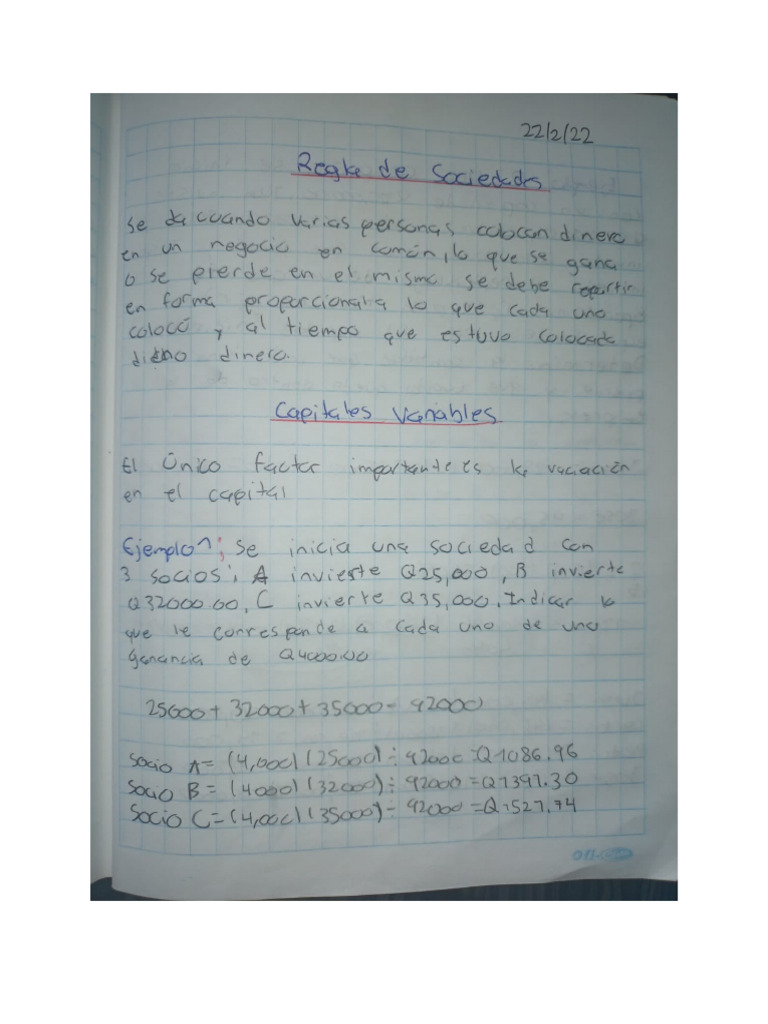 22/2/22
Regla de Sociedades
Se da cuando varias personas colocan dinero
en un negocio en común, lo que se gana
o se pierde en el mismo se debe repartir
en forma proporcional a lo que cada uno
colocó y al tiempo que estuvo colocado
dicho dinero.
Capitales Variables
El Único factor importante es la variación
en el capital
Ejemplo 1: Se inicia una sociedad con
3 socios; A invierte Q25,000, B invierte
Q32000.00, C invierte Q35,000. Indicar lo
que le corresponde a cada uno de una
ganancia de Q4000.00
25000 + 32000 + 35000 = 92000
Socio A = (4,000) (25000) ÷ 92000 = Q1086.96
Socio B = (4000) (32000) ÷ 92000 = Q1391.30
Socio C = (4,000) (35000) ÷ 92000 = Q1521.74